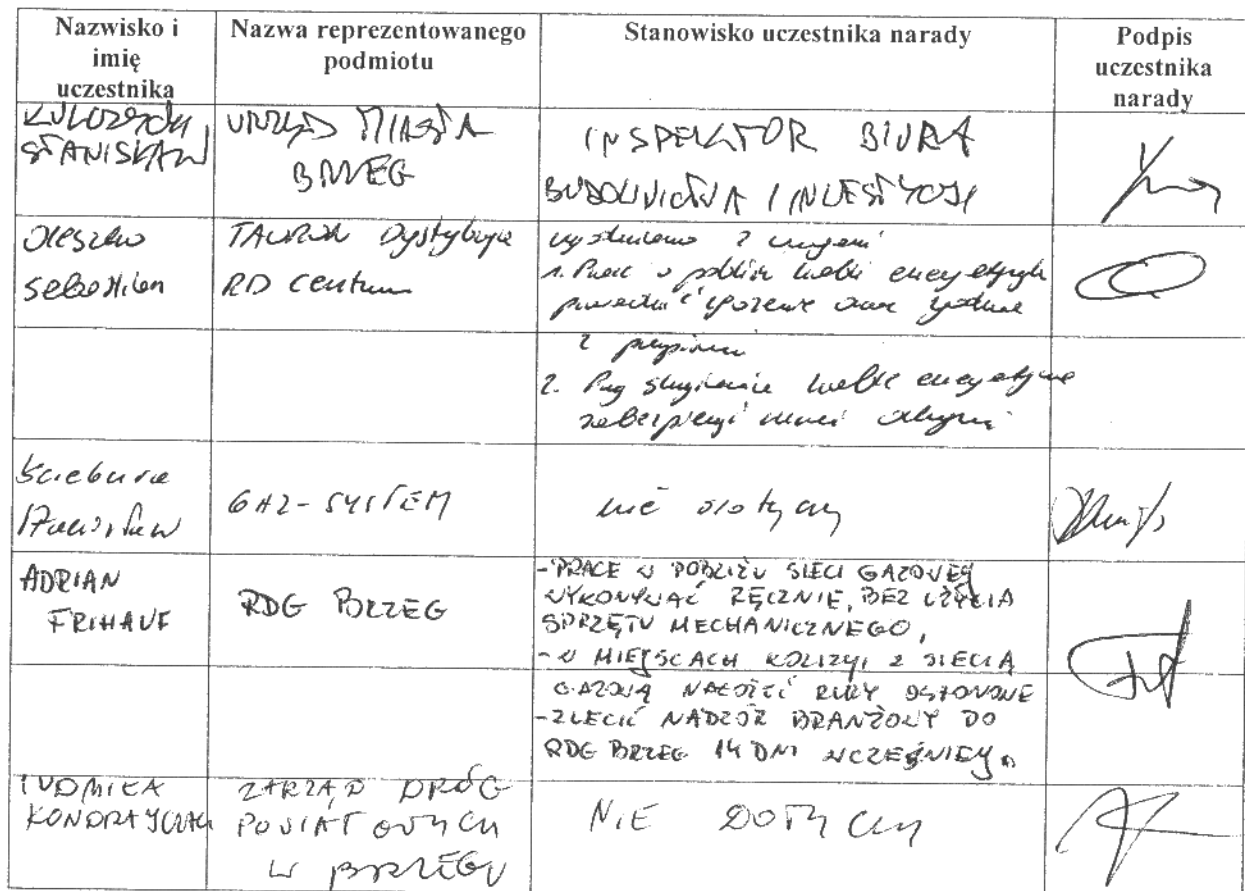 Nazwisko i
imię
uczestnika
Nazwa reprezentowanego
podmiotu
Stanowisko uczestnika narady
Podpis
uczestnika
narady
STANISŁAW
URZĄD MIASTA
BRZEG
INSPEKTOR BIURA
BUDOWNICTWA I INWESTYCJI
Oleszko
Sebastian
TAURON Dystrybucja
RD Centrum
uzgodniono z uwagami
1. Prace w pobliżu kabli energetycznych
prowadzić ręcznie oraz zgodnie
z przepisami
2. kable energetyczne
zabezpieczyć rurami
Stanisław
GAZ-SYSTEM
nie dotyczy
ADRIAN
FRIHAUF
RDG BRZEG
-PRACE W POBLIŻU SIECI GAZOWEJ
WYKONYWAĆ RĘCZNIE, BEZ UŻYCIA
SPRZĘTU MECHANICZNEGO,
- W MIEJSCACH KOLIZYI Z SIECIĄ
GAZOWĄ NAŁOŻYĆ RURY OSŁONOWE
-ZLECIĆ NADZÓR BRANŻOWY DO
RDG BRZEG 14 DNI WCZEŚNIEJ.
LUDMIŁA
ZARZĄD DRÓG
POWIATOWYCH
W BRZEGU
NIE DOTYCZY